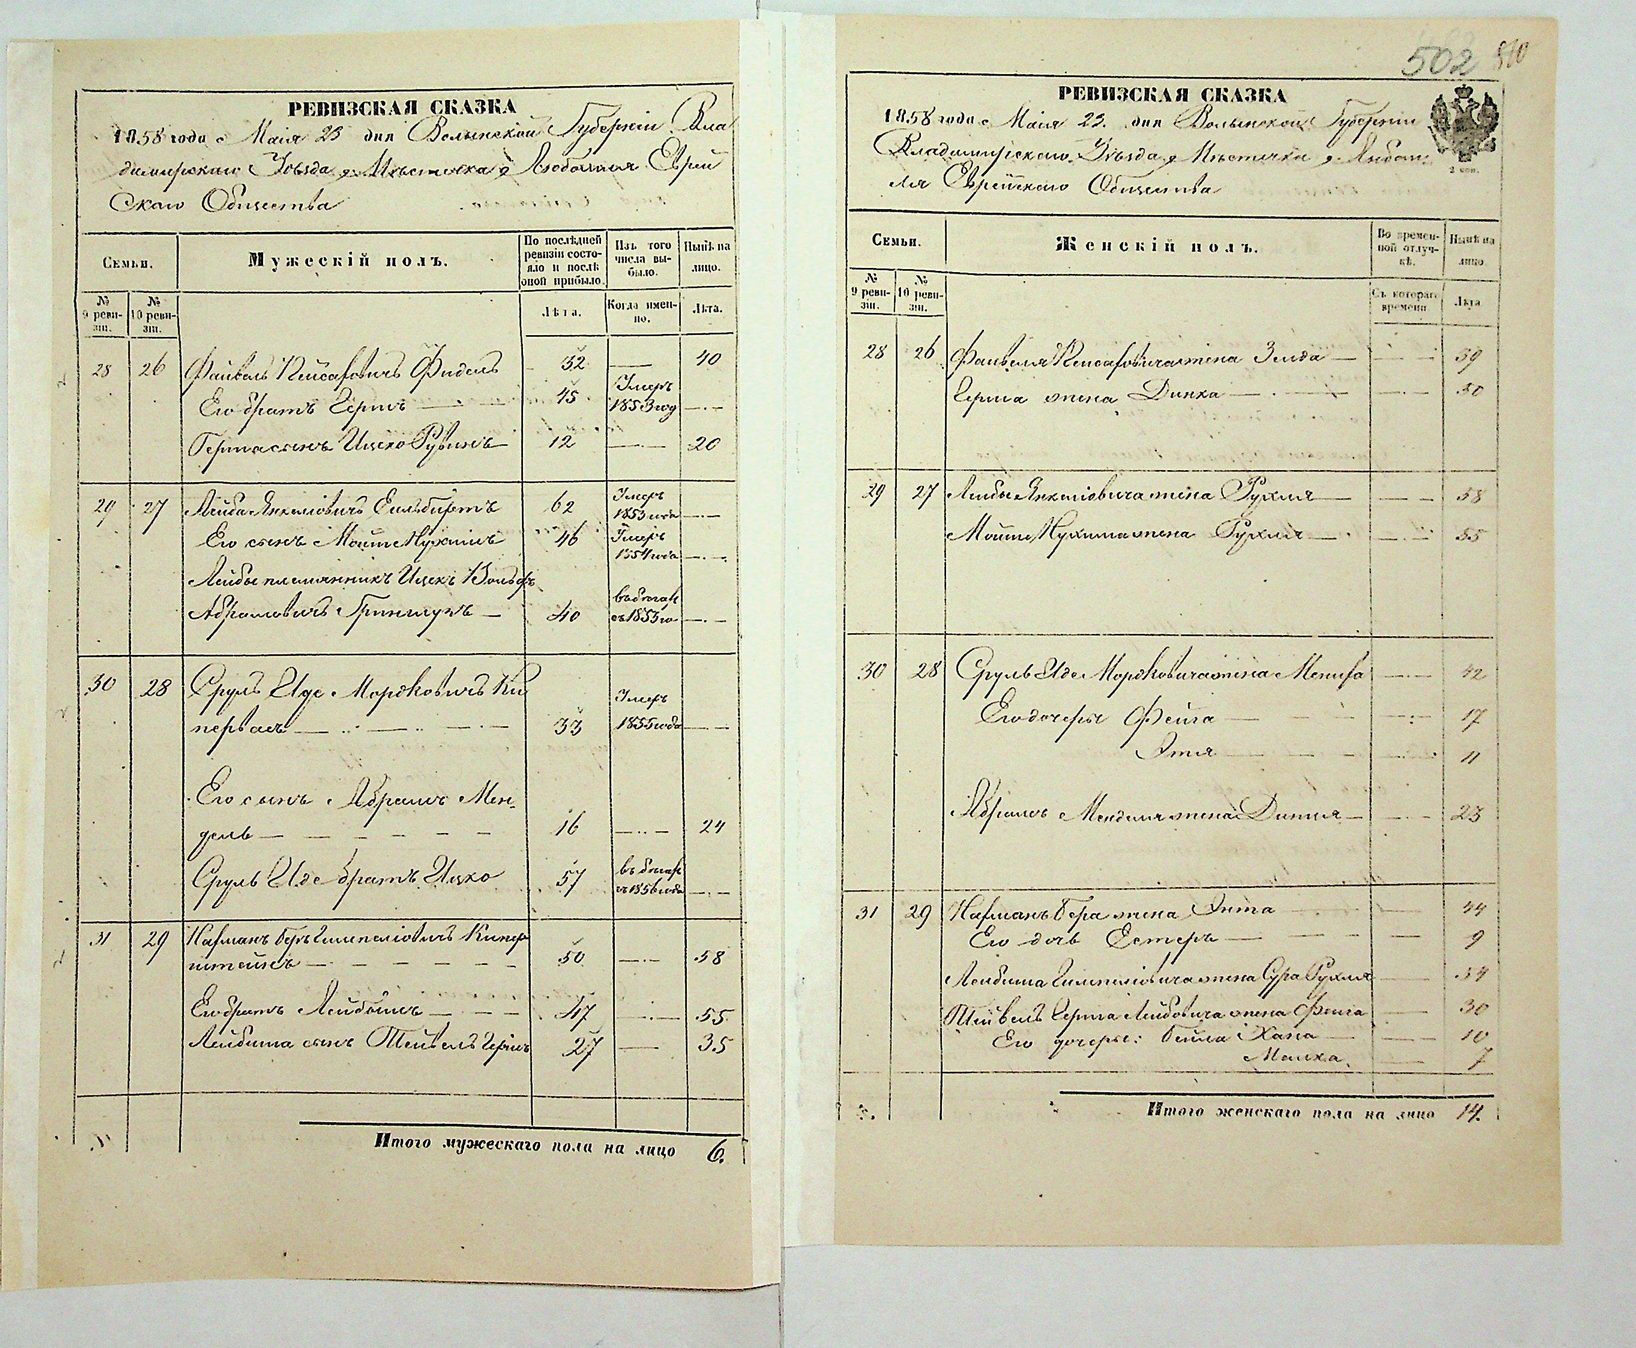 РЕВИЗСКАЯ СКАЗКА
1858 года Маія 23 дня Волынской Губерніи Вла
димирскаго Уѣзда Мѣстечка Любомля Еврей
скаго Общества
Семьи.
Мужескій полъ.
По послѣдней ревизіи состояло и послѣ оной прибыло.
Изъ того числа выбыло.
Нынѣ на лицо.
№ 9 ревизіи.
№ 10 ревизіи.
Лѣта.
Когда именно.
Лѣта.
28 26 Файвель Кейсаровичъ Фидель 32 — 40
Его братъ Гершъ 45 Умеръ 1853 году —
Герша сынъ Ицко Рувинъ 12 — 20
29 27 Лейба Янкелiовичъ 62 Умеръ 1853 года —
Его сынъ Мошко Нухимъ 46 Умеръ 1854 года —
Лейбы племянникъ Ицекъ Вольфъ
Абрамовичъ 40 въ бѣгахъ съ 1853 го —
30 28 Сруль Иде Мордковичъ Ки
первасъ 33 Умеръ 1855 года —
Его сынъ Абрамъ Мен-
дель 16 — 24
Сруль Иде братъ Ицко 57 въ бѣгах съ 1856 года —
31 29 Нафманъ Беръ Гимпелiовичъ Купер
штейнъ 50 — 58
Его братъ Лейбишъ 47 — 55
Лейбиша сынъ Тейвель Гершъ 27 — 35
Итого мужескаго пола на лицо 6.
502
РЕВИЗСКАЯ СКАЗКА
1858 года Маія 23. дня Волынской Губерніи
Владимирскаго Уѣзда Мѣстечка Любом
ля Еврейскаго Общества
2 коп.
Семьи.
Женскій полъ.
Во временной отлучкѣ.
Нынѣ на лицо
№ 9 ревизіи.
№ 10 ревизіи.
Съ котораго времени
Лѣта
28 26 Файвеля Кейсаровича жена Зельда — 39
Герша жена Динха — 30
29 27 Лейбы Янкелiовича жена Рухля — 58
Мошко Нухима жена Рухля — 55
30 28 Сруль Иде Мордковича жена — 42
Его дочери Фейга — 17
Этля — 11
Абрамъ Менделя жена — 23
31 29 Нафманъ Бера жена Энта — 44
Его дочь Естеръ — 9
Лейбиша Гимпелiовича жена Сура Рухля — 54
Тейвель Герша Лейбовича жена Фейга — 30
Его дочери: Бейла Хана — 10
Малка. — 7
Итого женскаго пола на лицо 14.